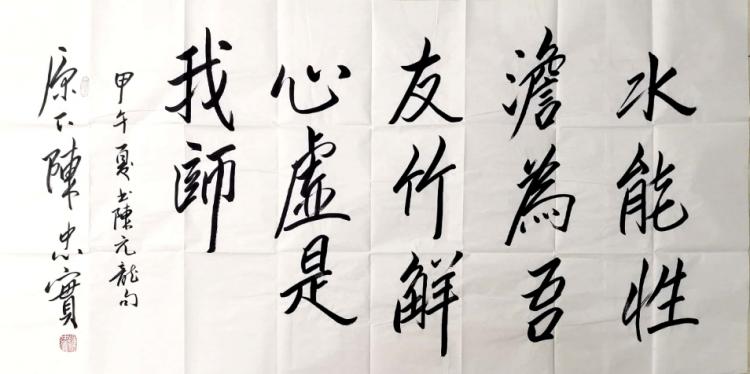 水能性
澹為吾
友竹解
心虛是
我師
甲午夏书陳元龍句
原下陳忠實